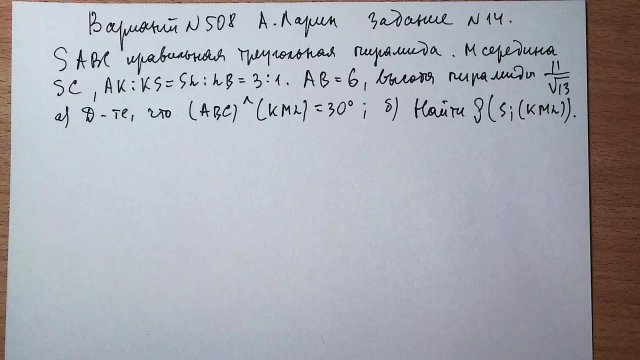 Вариант N 508 А. Ларин Задание N 14.
SABC правильная треугольная пирамида. M середина
SC, AK:KS = SL:LB = 3:1. AB = 6, высота пирамиды 11/√13
а) Д-те, что (ABC)^(KML) = 30°; б) Найти ρ(S;(KML)).